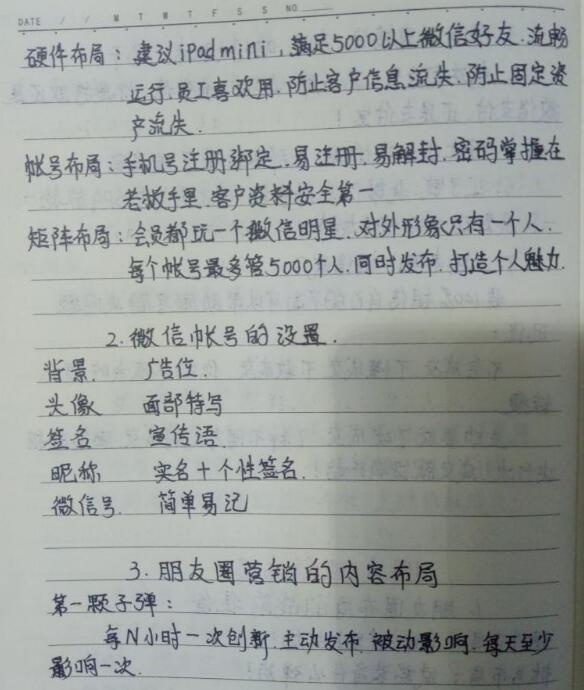 DATE / / M T W T F S S NO.
硬件布局：建议iPad mini，满足5000以上微信好友.流畅
运行.员工喜欢用.防止客户信息流失.防止固定资
产流失.
帐号布局：手机号注册绑定.易注册.易解封.密码掌握在
老板手里.客户资料安全第一
矩阵布局：会员都玩一个微信明星.对外形象只有一个人.
每个帐号最多管5000个人.同时发布.打造个人魅力.
2.微信帐号的设置.
背景. 广告位.
头像 面部特写
签名 宣传语
昵称 实名+个性签名.
微信号. 简单易记
3.朋友圈营销的内容布局
第一颗子弹：
每N小时一次创新.主动发布.被动影响.每天至少
影响一次.